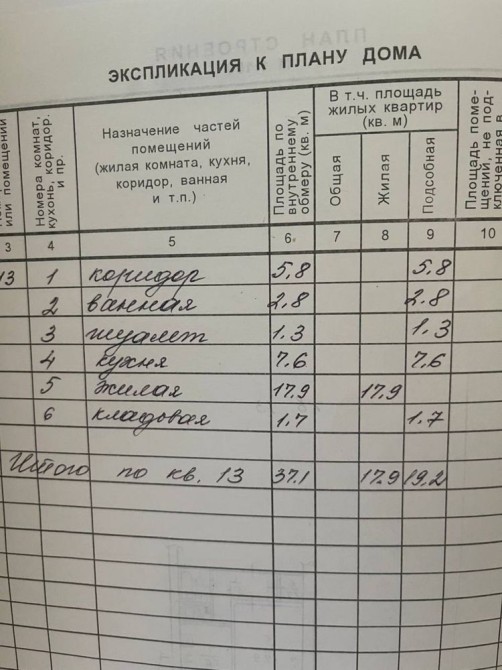 ПЛАН СТРОЕНИЯ
ЭКСПЛИКАЦИЯ К ПЛАНУ ДОМА
или помещений
Номера комнат, кухонь, коридор. и пр.
Назначение частей
помещений
(жилая комната, кухня,
коридор, ванная
и т.п.)
Площадь по внутреннему обмеру (кв. м)
В т.ч. площадь
жилых квартир
(кв. м)
Общая
Жилая
Подсобная
Площадь поме-
щений, не под-
ключенная в
3 4 5 6 7 8 9 10
13 1 коридор 5,8 5,8
2 ванная 2.8 2.8
3 туалет 1.3 1.3
4 кухня 7.6 7.6
5 жилая 17.9 17.9
6 кладовая 1.7 1.7
Итого по кв. 13 37.1 17.9 19.2